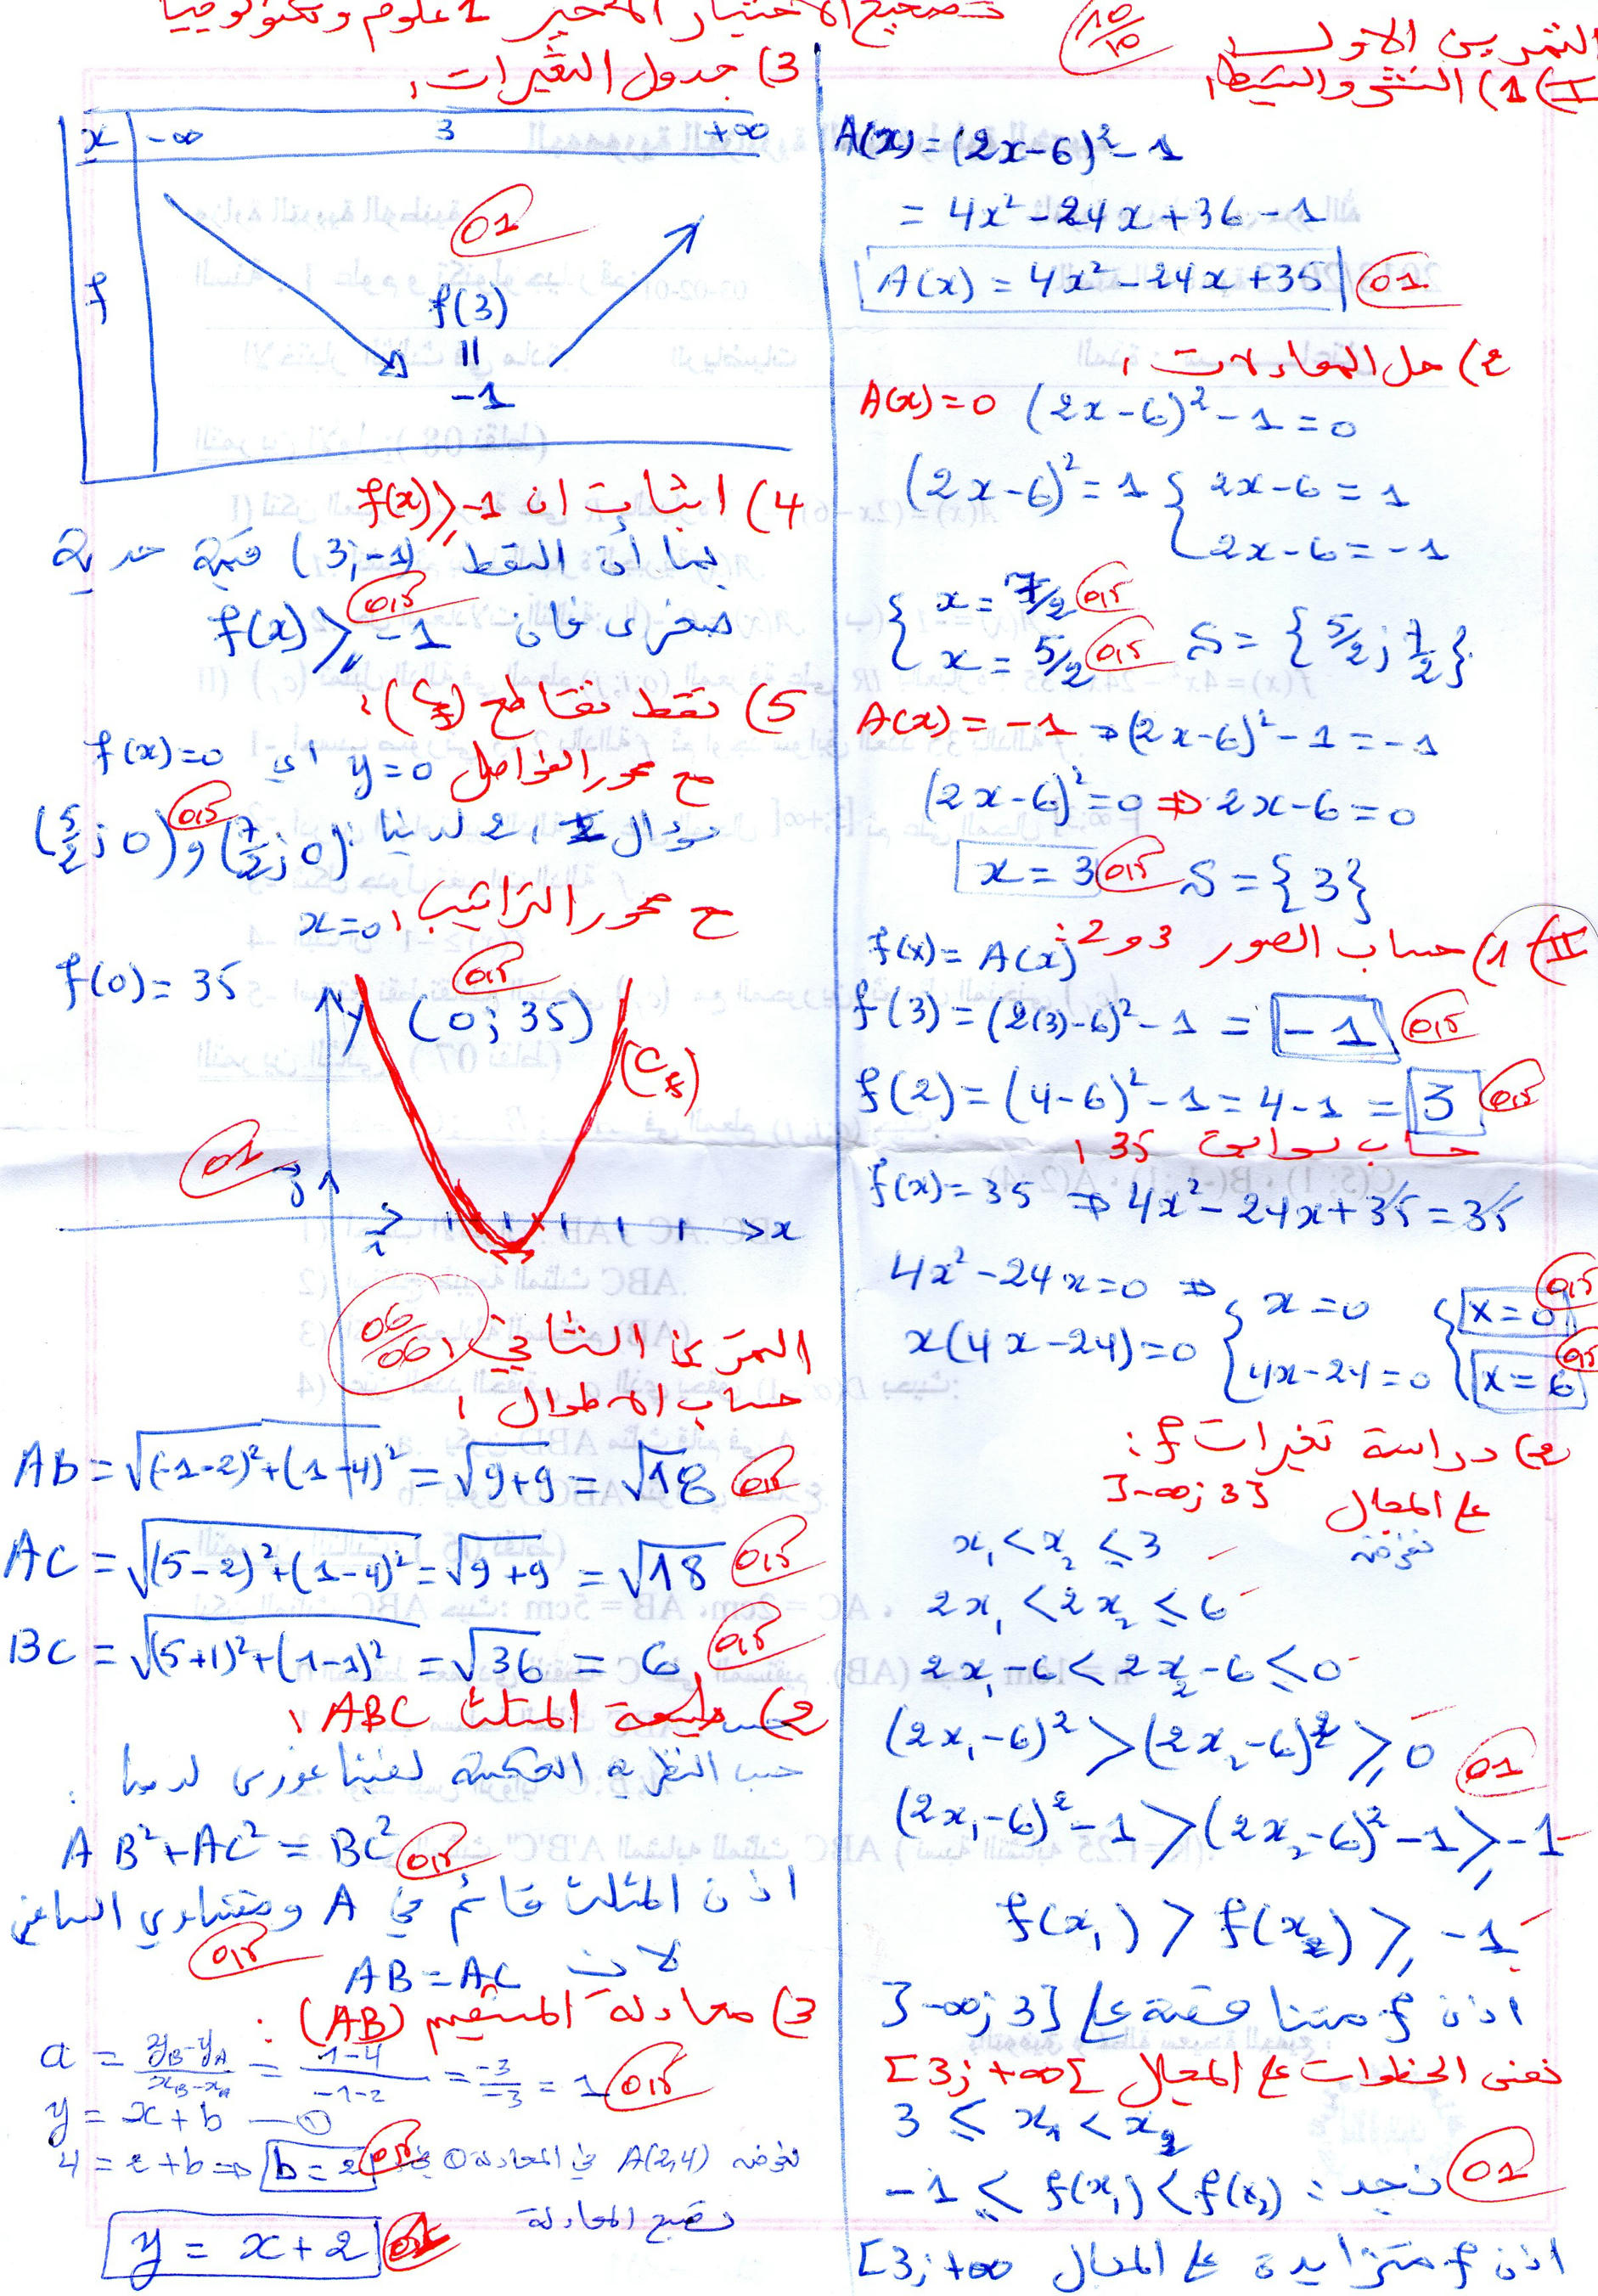 تصحيح الاختبار الأخير 1 علوم وتكنولوجيا
التمرين الاول
10/10
I) 1) النشر والتبسيط:
A(x) = (2x-6)² - 1
= 4x² - 24x + 36 - 1
A(x) = 4x² - 24x + 35 01
2) حل المعادلات:
A(x)=0 (2x-6)² - 1 = 0
(2x-6)² = 1 { 2x-6 = 1
2x-6 = -1
{ x = 7/2 0,5
x = 5/2 0,5 S = {5/2 ; 7/2}
A(x) = -1 ⇒ (2x-6)² - 1 = -1
(2x-6)² = 0 ⇒ 2x-6 = 0
x = 3 0,5 S = {3}
II) 1) حساب الصور 3 و 2: f(x) = A(x)
f(3) = (2(3)-6)² - 1 = -1 0,5
f(2) = (4-6)² - 1 = 4-1 = 3 0,5
حساب سوابق 35:
f(x) = 35 ⇒ 4x² - 24x + 35 = 35
4x² - 24x = 0 ⇒
x(4x-24) = 0 { x = 0 { x = 0 0,5
4x-24 = 0 x = 6 0,5
2) دراسة تغيرات f:
على المجال ]-∞; 3]
نفرض x₁ < x₂ ≤ 3
2x₁ < 2x₂ ≤ 6
2x₁-6 < 2x₂-6 ≤ 0
(2x₁-6)² > (2x₂-6)² ≥ 0 01
(2x₁-6)² - 1 > (2x₂-6)² - 1 ≥ -1
f(x₁) > f(x₂) ≥ -1
اذن f متناقصة على ]-∞; 3]
نفس الخطوات على المجال [3; +∞[
3 ≤ x₁ < x₂
نجد: -1 ≤ f(x₁) < f(x₂) 01
اذن f متزايدة على المجال [3; +∞
3) جدول التغيرات:
x -∞ 3 +∞
01
f f(3)
=
-1
4) اثبات ان f(x) ≥ -1
بما أن النقط (3;-1) قيمة حدية
صغرى فان f(x) ≥ -1 0,5
5) نقط تقاطع (Cf):
مع محور الفواصل y=0 اي f(x)=0
سؤال 2، لدينا: (7/2; 0) و (5/2; 0) 0,5
مع محور التراتيب: x=0
f(0) = 35 (0; 35) 0,5
y
(Cf)
01
j
i
x
التمرين الثاني: 06/06
حساب الاطوال:
AB = √(-1-2)²+(1-4)² = √9+9 = √18 0,5
AC = √(5-2)²+(1-4)² = √9+9 = √18 0,5
BC = √(5+1)²+(1-1)² = √36 = 6 0,5
2) طبيعة المثلث ABC:
حسب النظرية العكسية لفيتاغورس لدينا:
AB²+AC² = BC² 0,5
اذن المثلث قائم في A ومتساوي الساقين
لان AB = AC 0,5
3) معادلة المستقيم (AB):
a = yB-yA/xB-xA = 1-4/-1-2 = -3/-3 = 1 0,5
y = x + b — ①
نفرض A(2,4) في المعادلة ① 4 = 2+b ⇒ b = 2 0,5
تصبح المعادلة
y = x + 2 01